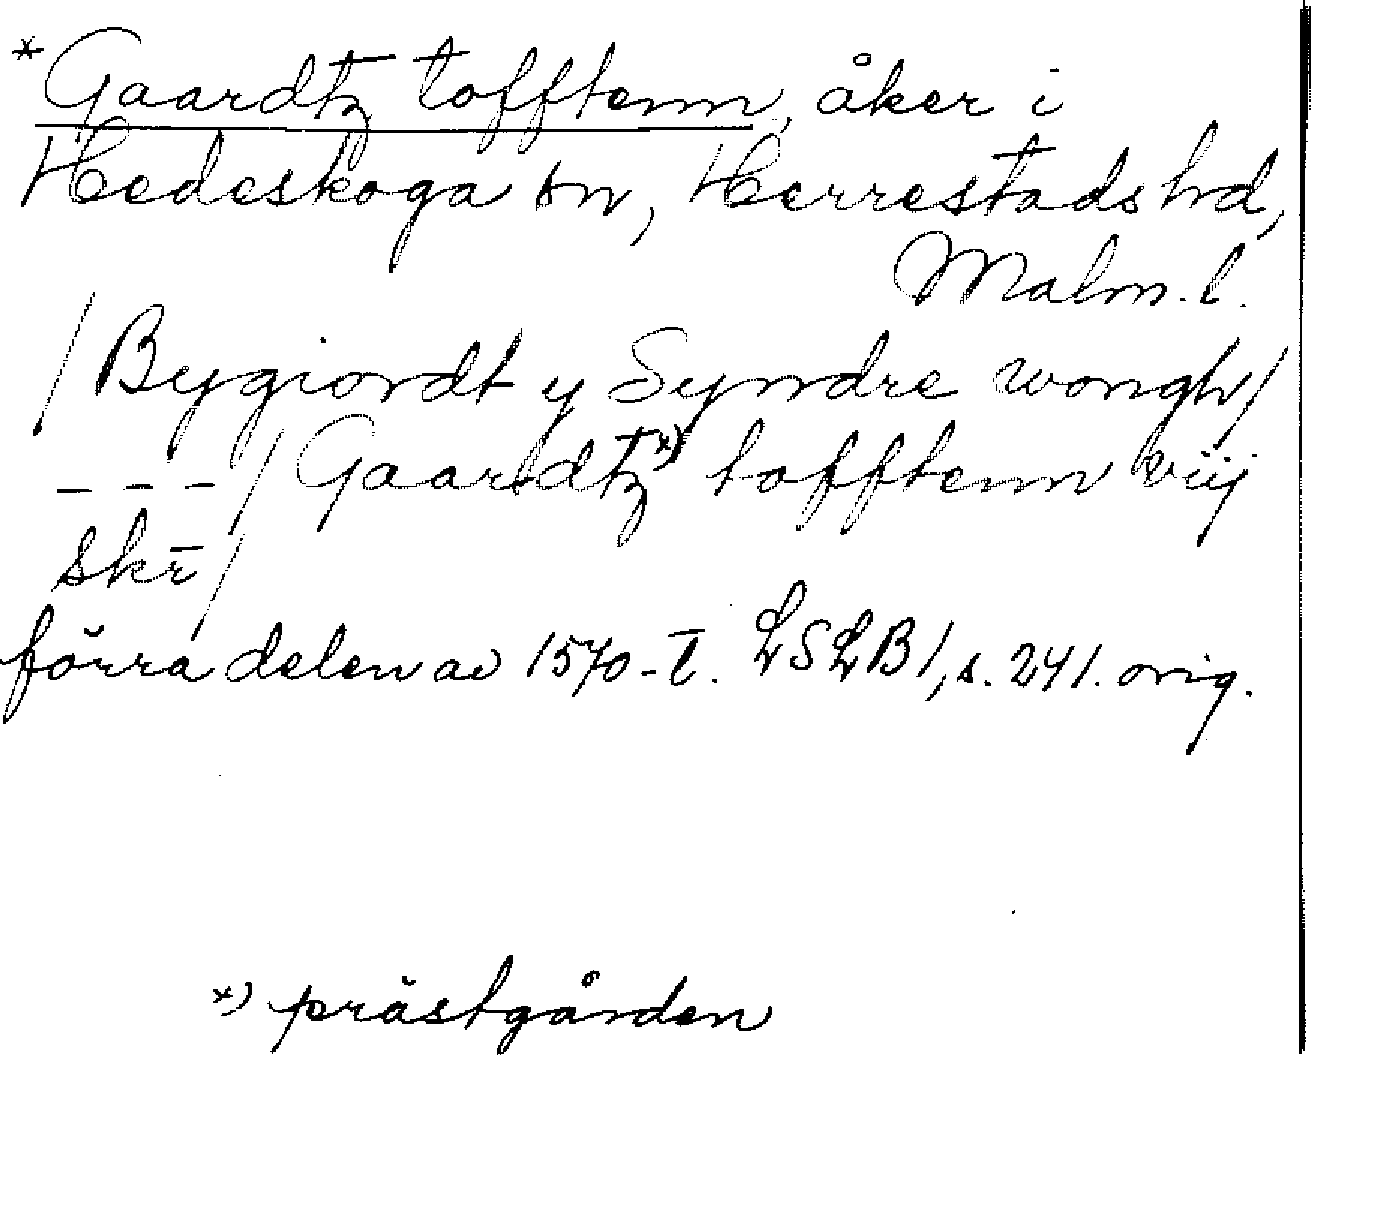 *Gaardtz tofftenn, åker i
Hedeskoga sn, Herrestads hd,
Malm. l.
/Bygiordt y Syndre wongh/
- - - /Gaardtz *) tofftenn viij
skr̄/
förra delen av 1570-t. LSLB1, s. 241. orig.
*) prästgården